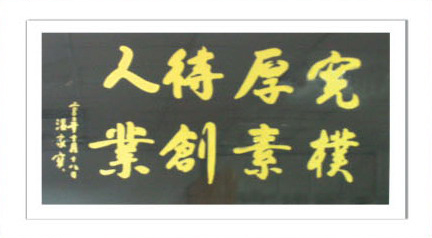 寬厚待人
樸素創業